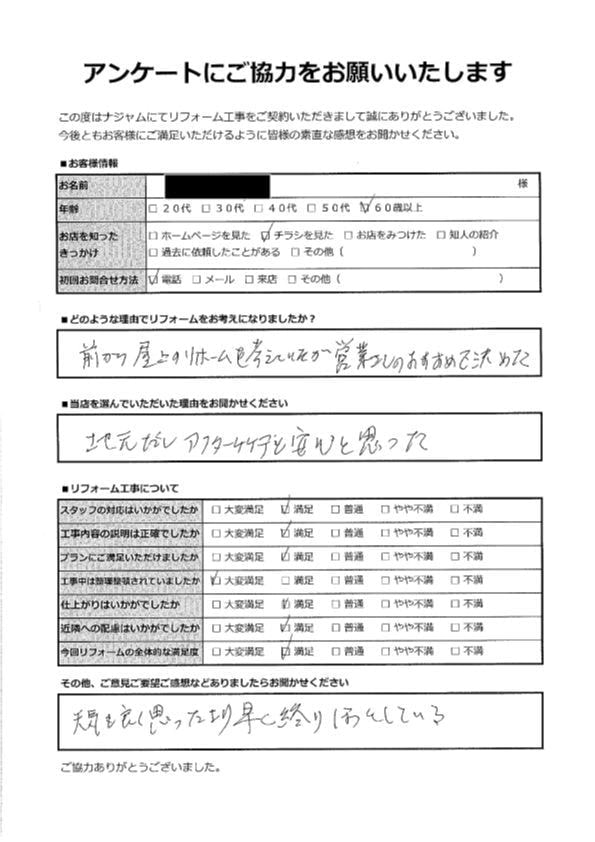 アンケートにご協力をお願いいたします
この度はナジャムにてリフォーム工事をご契約いただきまして誠にありがとうございました。
今後ともお客様にご満足いただけるように皆様の素直な感想をお聞かせください。
■お客様情報
お名前 様
年齢 □20代 □30代 □40代 □50代 ☑60歳以上
お店を知ったきっかけ □ホームページを見た ☑チラシを見た □お店をみつけた □知人の紹介
□過去に依頼したことがある □その他( )
初回お問合せ方法 ☑電話 □メール □来店 □その他( )
■どのような理由でリフォームをお考えになりましたか?
前から屋上のリホームを考えていたが営業さんのおすすめで決めた
■当店を選んでいただいた理由をお聞かせください
地元だし アフターケアも安心と思った
■リフォーム工事について
スタッフの対応はいかがでしたか □大変満足 ☑満足 □普通 □やや不満 □不満
工事内容の説明は正確でしたか □大変満足 ☑満足 □普通 □やや不満 □不満
プランにご満足いただけましたか □大変満足 ☑満足 □普通 □やや不満 □不満
工事中は整理整頓されていましたか ☑大変満足 □満足 □普通 □やや不満 □不満
仕上がりはいかがでしたか □大変満足 ☑満足 □普通 □やや不満 □不満
近隣への配慮はいかがでしたか □大変満足 ☑満足 □普通 □やや不満 □不満
今回リフォームの全体的な満足度 □大変満足 ☑満足 □普通 □やや不満 □不満
その他、ご意見ご要望ご感想などありましたらお聞かせください
天気も良く思ったより早く終りほっとしている
ご協力ありがとうございました。